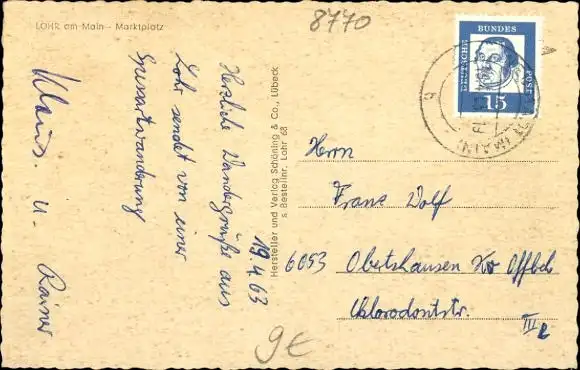 LOHR am Main – Marktplatz
8770
Herzliche Wandergrüße aus
Lohr sendet von einer
Spessartwanderung
Klaus. u. Rainer
19.4.63
Hersteller und Verlag Schöning & Co., Lübeck
s Bestellnr. Lohr 68
DEUTSCHE BUNDES POST
15
(MAIN)
h
Herrn
Franz Wolf
6053 Obertshausen Kr Offbch
Chlorodontstr.
9€